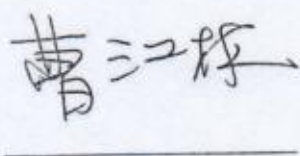 曹江林